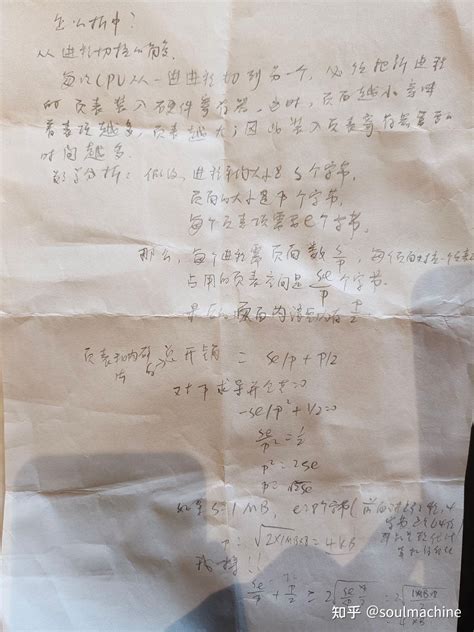 怎么折中?
从进程切换的角度
每次CPU从一进程切到另一个,必须把新进程
的页表装入硬件寄存器,这时,页面越小意味
着表项越多,页表越大;因此装入页表寄存器需要的
时间越多.
数学分析:假设,进程平均大小是S个字节,
页面的大小是P个字节,
每个页表项需要e个字节,
那么,每个进程需页面数S/P,每个页面对应一个
占用的页表空间是se/P个字节.
最后的页面内浪费内存P/2
页表和内碎片总开销 = se/P + P/2
对P求导并令其=0
-se/P²+1/2=0
se/P²=1/2
P²=2se
P=√2se
如果S=1MB, e=8个字节(
P=√2×1MB×8=4KB
se/P + P/2 ≥ 2√
4KB
知乎 @soulmachine